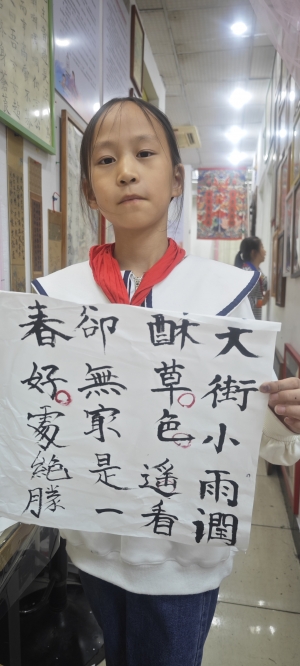 大街小雨潤
酥草色遙看
卻無冣是一
春好處絕勝